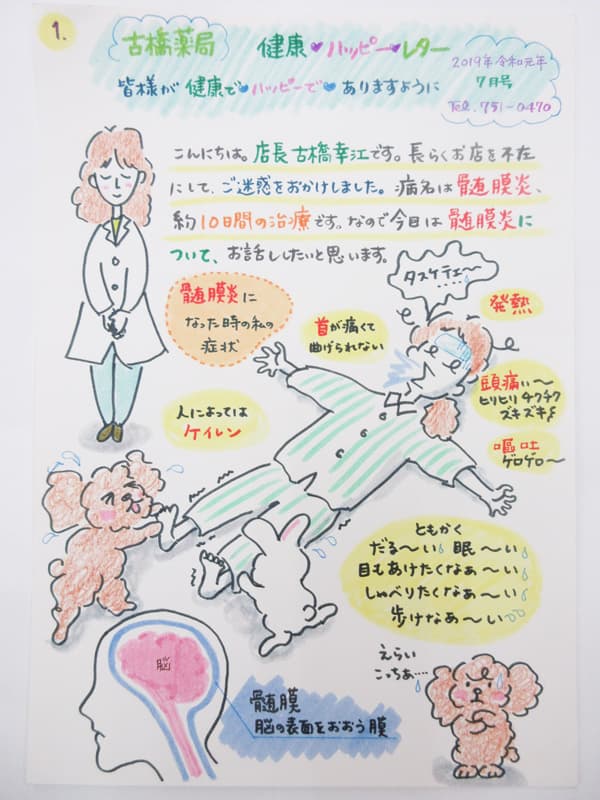 1.
古橋薬局 健康♥ハッピー♥レター
2019年令和元年
7月号
TEL.751-0470
皆様が健康で♥ハッピーで♥ありますように
こんにちは。店長古橋幸江です。長らくお店を不在
にして、ご迷惑をおかけしました。病名は髄膜炎、
約10日間の治療です。なので今日は髄膜炎に
ついて、お話ししたいと思います。
髄膜炎に
なった時の私の
症状
タスケテェ〜
首が痛くて
曲げられない
発熱
頭痛い〜
ヒリヒリチクチク
ズキズキ
嘔吐
ゲロゲロ〜
人によっては
ケイレン
ともかく
だる〜い 眠〜い
目もあけたくなぁ〜い
しゃべりたくなぁ〜い
歩けなぁ〜い
脳
髄膜
脳の表面をおおう膜
えらい
こっちゃ....